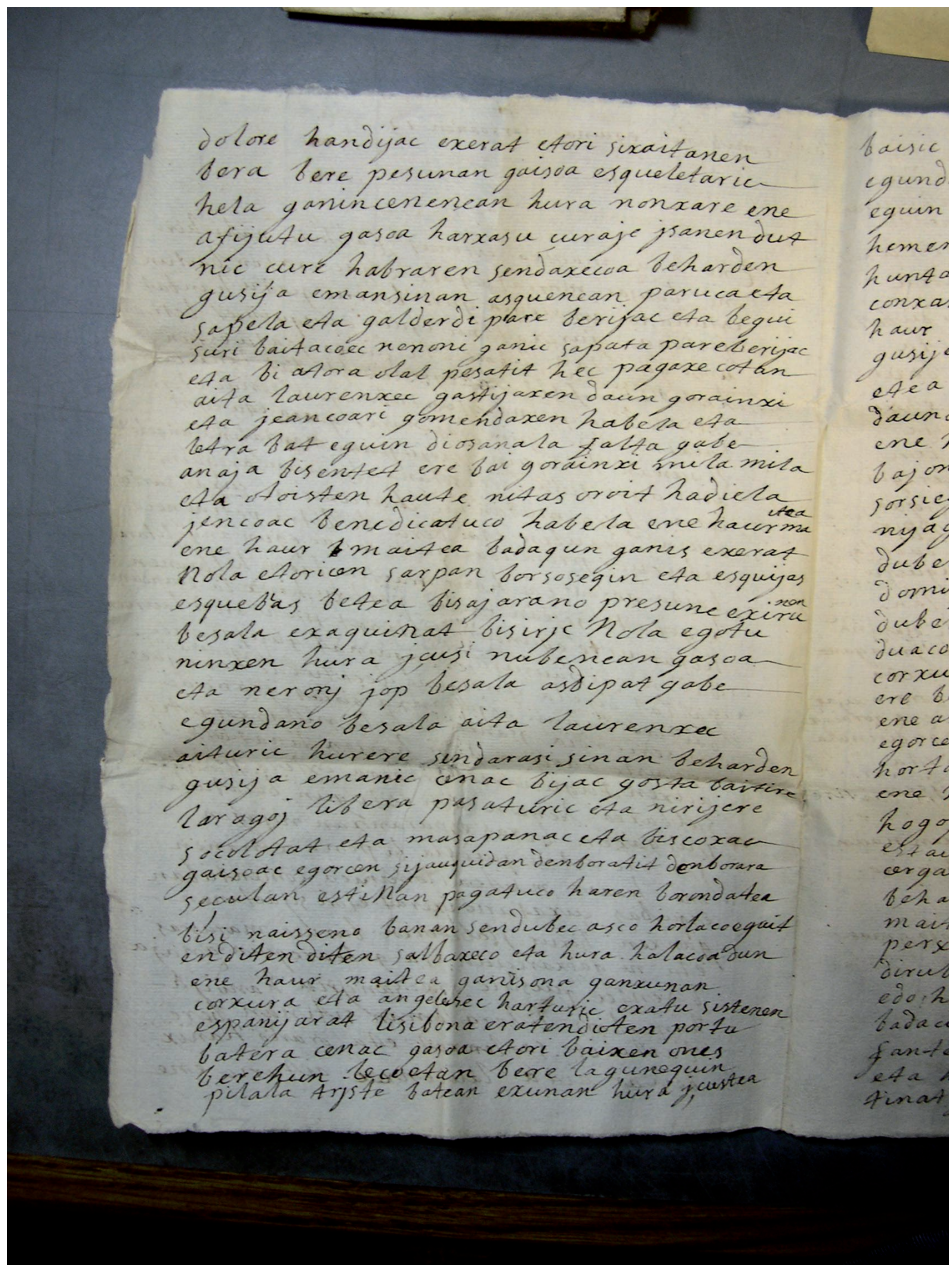 dolore handijac exerat etori sixaitanen
bera bere pesunan gaisoa esqueletaric
hela ganincenenean hura nonxare ene
afijutu gasoa harxasu curaje jsanen dut
nic cure habraren sendaxecoa beharden
gusija emansinan asquenean paruca eta
sapela eta galderdi pare berijac eta begui
suri baitacoec nenoni ganic sapata pare berijac
eta bi atora olal pesatit hec pagaxecotan
aita laurenxec gastijaxen daun gorainxi
eta jeancoari gomendaxen habela eta
letra bat eguin diosanala falta gabe
anaja bisentet ere bai gorainxi mila mila
eta otoisten haute nitas oroit hadiela
jencoac benedicatuco habela ene haur maitea
ene haur maitea badaqun ganis exerat
Nola etoricen sarpan borsosegin eta esquijas
esquebas betea bisajarano presune exiru non
besala exaquinat bisirjc Nola egotu
ninxen hura jcusi nubenean gasoa
eta neronj jop besala asdipat gabe
egundano besala aita laurenxec
aituric hurere sendarasi sinan beharden
gusija emanic cenac bijac gosta baitire
laragoj libera pasaturic eta nirijere
socolotat eta masapanac eta biscoxac
gaisoac egorcen sijauquidan denboratit denborara
seculan estinan pagatuco haren borondatea
bisi naisseno banan sendubec asco horlaco eguit
enditen diten salbaxeco eta hura halacoa dun
ene haur maitea ganisona ganxunan
corxura eta angelesec harturic exatu sistenen
espanijarat lisibona eratendioten portu
batera cenac gasoa etori baixen ones
berehun lecoetan bere lagunequin
pilala trjste batean exunan hura jcustea
baisic
egund
eguin
hemen
hunta
conxa
haur
gusije
etea
daun
ene
bajon
sorsie
nijag
dube
domi
dube
duaco
corxu
ere b
ene a
egorce
horta
ene
hogo
estai
cerga
beha
mait
persx
dirub
edo h
badac
fante
eta
tinat